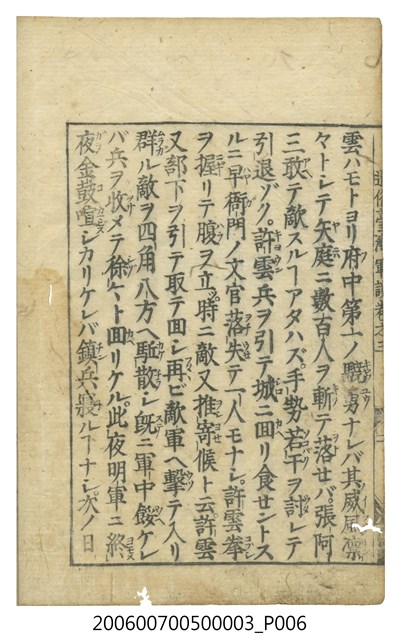 雲ハモトヨリ府中第一ノ驍勇ナレバ其威風凛
々トシテ矢庭ニ數百人ヲ斬テ落セバ張阿
三敢テ敵スルヿアタハズ手勢若干ヲ討レテ
引退ゾク。許雲兵ヲ引テ城ニ回リ食セントス
ルニ早衛門ノ文官落失テ一人モナシ。許雲拳
ヲ握リテ腹ヲ立ツ時ニ敵又推寄候ト云許雲
又部下ヲ引テ取テ回シ再ビ敵軍ヘ擊テ入リ
群ル敵ヲ四角八方ヘ駈散シ既ニ軍中餒ケレ
バ兵ヲ收メテ徐々ト回リケル。此夜明軍ニ終
夜金鼓喧シカリケレバ鎮兵寢ルヿナシ。次ノ日
通俗臺灣軍談卷之三
200600700500003_P006